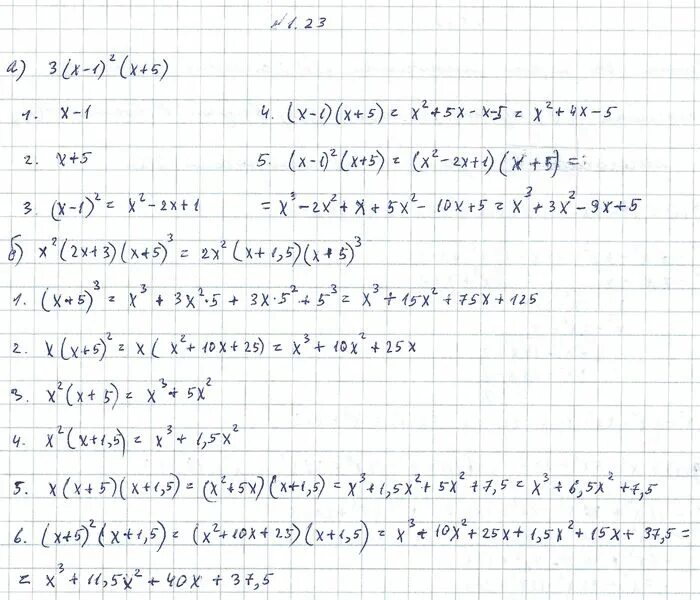 №1.23
а) 3(x-1)²(x+5)
1. x-1
2. x+5
3. (x-1)² = x²-2x+1
4. (x-1)(x+5) = x²+5x-x-5 = x²+4x-5
5. (x-1)²(x+5) = (x²-2x+1)(x+5) =
= x³-2x²+x+5x²-10x+5 = x³+3x²-9x+5
б) x²(2x+3)(x+5)³ = 2x²(x+1,5)(x+5)³
1. (x+5)³ = x³+3x²·5+3x·5²+5³ = x³+15x²+75x+125
2. x(x+5)² = x(x²+10x+25) = x³+10x²+25x
3. x²(x+5) = x³+5x²
4. x²(x+1,5) = x³+1,5x²
5. x(x+5)(x+1,5) = (x²+5x)(x+1,5) = x³+1,5x²+5x²+7,5 = x³+6,5x²+7,5
6. (x+5)²(x+1,5) = (x²+10x+25)(x+1,5) = x³+10x²+25x+1,5x²+15x+37,5 =
= x³+11,5x²+40x+37,5